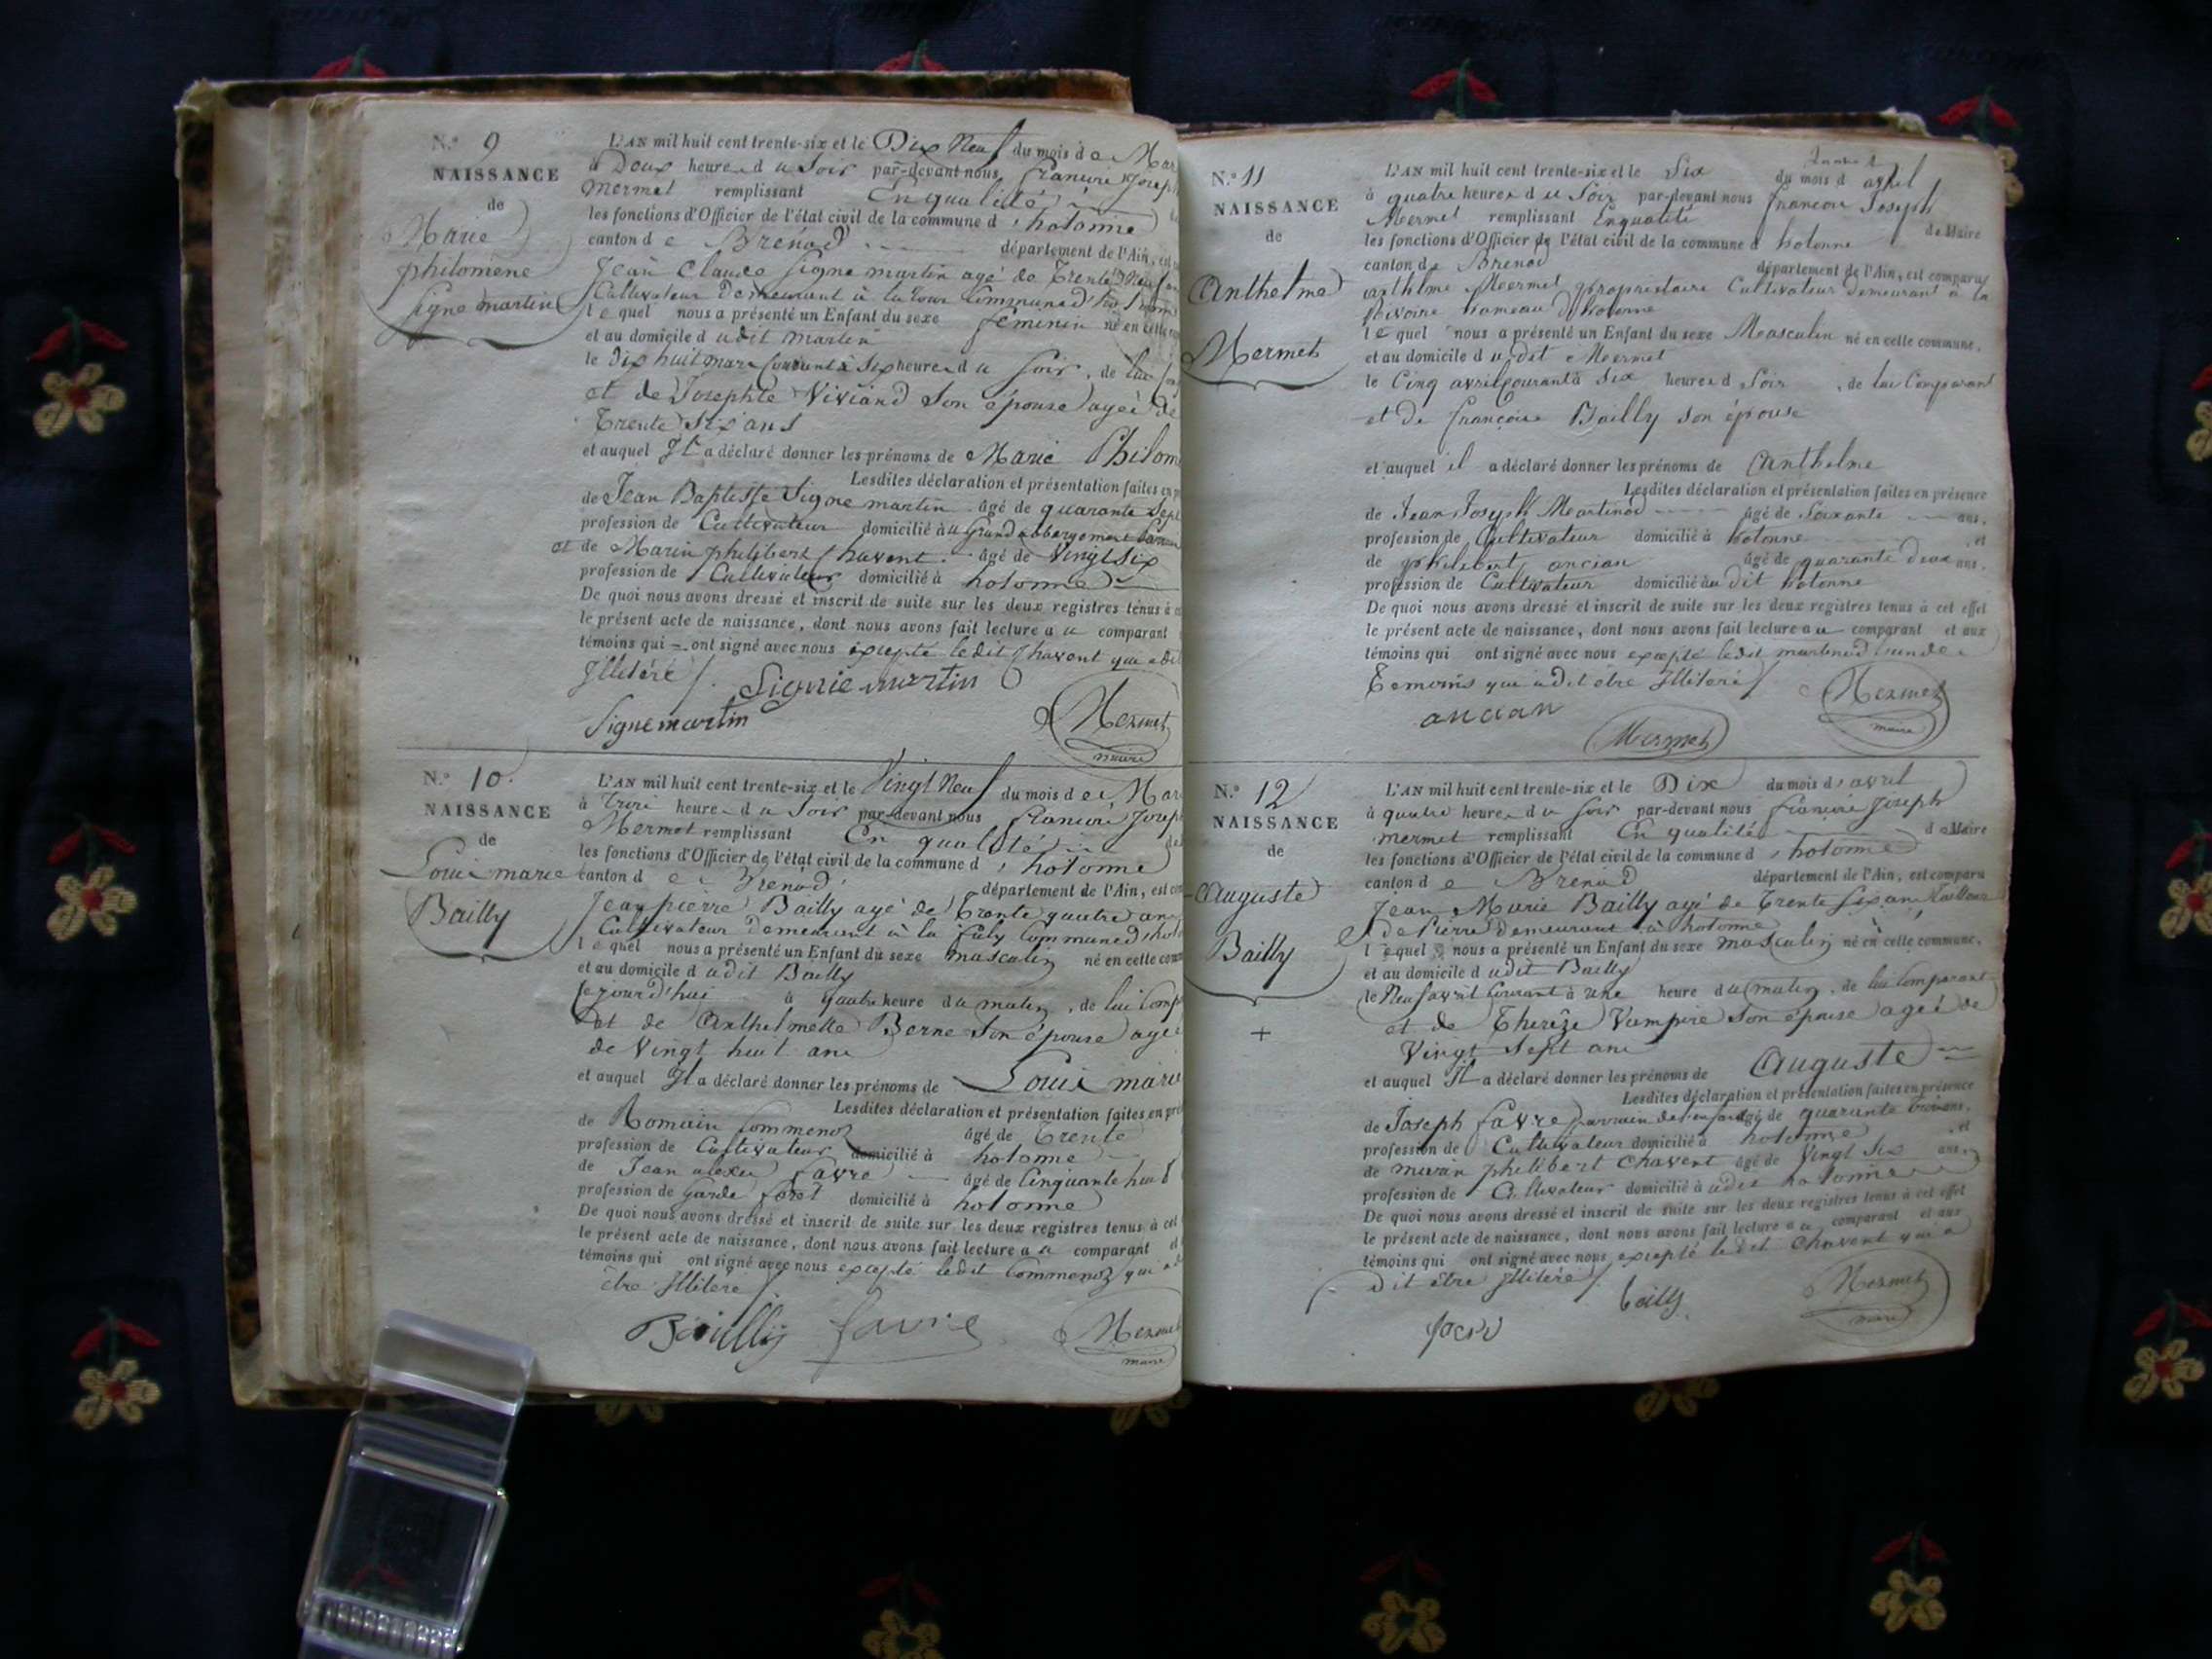 N.º 9
NAISSANCE
de
Marie
philomene
Signe martin
L'AN mil huit cent trente-six et le Dix Neuf du mois de Mar
à Deux heures du Soir par-devant nous, francois Joseph
Mermet remplissant En qualité
les fonctions d'Officier de l'état civil de la commune d'hotonne
canton de Brenod département de l'Ain, est
Jean Claude Signe martin agé de Trente Neuf
Cultivateur Demeurant à la Commune d'
lequel nous a présenté un Enfant du sexe féminin né en cette
et au domicile dudit martin
le dix huit mars Courant à Six heures du Soir, de lui
et de Josephte Viviand Son épouse agée de
Trente Six ans
et auquel Il a déclaré donner les prénoms de Marie Philom
Lesdites déclaration et présentation faites en p
de Jean Baptiste Signe martin âgé de quarante Sept
profession de Cultivateur domicilié au Grand abbergement
et de Marin philibert Chavent âgé de Vingt Six
profession de Cultivateur domicilié à hotonne
De quoi nous avons dressé et inscrit de suite sur les deux registres tenus à c
le présent acte de naissance, dont nous avons fait lecture au comparant
témoins qui ont signé avec nous excepté ledit Chavent qui a dit
Illitéré /.
Signe martin
Mermet
maire
N.º 10
NAISSANCE
de
Louis marie
Bailly
L'AN mil huit cent trente-six et le Vingt Neuf du mois de Mar
à trois heures du Soir par-devant nous francois Joseph
Mermet remplissant En qualité de
les fonctions d'Officier de l'état civil de la commune d'hotonne
canton de Brenod département de l'Ain, est com
Jean pierre Bailly agé de Trente quatre ans
Cultivateur Demeurant à la Commune d'hoto
lequel nous a présenté un Enfant du sexe masculin né en cette comm
et au domicile dudit Bailly
Cejourd'hui à quatre heure du matin, de lui Comp
et de Anthelmette Berne Son épouse agée
de Vingt huit ans
et auquel Il a déclaré donner les prénoms de Louis marie
Lesdites déclaration et présentation faites en pré
de Romain Commenoz âgé de Trente
profession de Cultivateur domicilié à hotonne
de Jean alexis favre âgé de Cinquante huit
profession de Garde forêt domicilié à hotonne
De quoi nous avons dressé et inscrit de suite sur les deux registres tenus à cet
le présent acte de naissance, dont nous avons fait lecture au comparant et
témoins qui ont signé avec nous excepté ledit Commenoz qui a d
être Illitéré /.
Bailly favre
Mermet
maire
N.º 11
NAISSANCE
de
Anthelme
Mermet
L'AN mil huit cent trente-six et le Six du mois d avril
à quatre heures du Soir par-devant nous francois Joseph
Mermet remplissant Enqualité de Maire
les fonctions d'Officier de l'état civil de la commune d hotonne
canton de Brenod département de l'Ain, est comparu
anthelme Mermet propriétaire Cultivateur demeurant à la
hameau d'hotonne
lequel nous a présenté un Enfant du sexe Masculin né en cette commune,
et au domicile dudit Mermet
le Cinq avril courant à Six heures d Soir, de lui Comparant
et de françoise Bailly son épouse
et auquel il a déclaré donner les prénoms de Anthelme
Lesdites déclaration et présentation faites en présence
de Jean Joseph Martinod âgé de Soixante ans,
profession de Cultivateur domicilié à hotonne, et
de philibert ancian âgé de quarante deux ans,
profession de Cultivateur domicilié au dit hotonne
De quoi nous avons dressé et inscrit de suite sur les deux registres tenus à cet effet
le présent acte de naissance, dont nous avons fait lecture au comparant et aux
témoins qui ont signé avec nous excepté ledit martinod l'un des
Temoins qui a dit être Illitéré /
ancian
Mermet
Mermet
maire
N.º 12
NAISSANCE
de
Auguste
Bailly
+
L'AN mil huit cent trente-six et le Dix du mois d'avril
à quatre heures du Soir par-devant nous francois Joseph
Mermet remplissant En qualité de Maire
les fonctions d'Officier de l'état civil de la commune d'hotonne
canton de Brenod département de l'Ain, est comparu
Jean Marie Bailly agé de Trente Six ans Tailleur
de Pierre demeurant à hotonne
lequel nous a présenté un Enfant du sexe masculin né en cette commune,
et au domicile dudit Bailly
le Neuf avril Courant à une heure du matin, de lui Comparant
et de Therèze Vampire Son épouse agée de
Vingt Sept ans
et auquel Il a déclaré donner les prénoms de Auguste
Lesdites déclaration et présentation faites en présence
de Joseph favre parrain de l'enfant âgé de quarante trois ans,
profession de Cultivateur domicilié à hotonne, et
de marin philibert Chavent âgé de Vingt Six ans,
profession de Cultivateur domicilié à udit hotonne
De quoi nous avons dressé et inscrit de suite sur les deux registres tenus à cet effet
le présent acte de naissance, dont nous avons fait lecture au comparant et aux
témoins qui ont signé avec nous excepté ledit Chavent qui a
dit être Illitéré /.
bailly
Mermet
maire